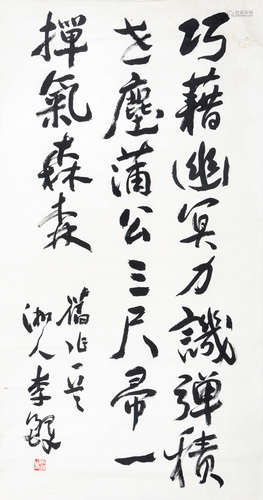 巧藉幽冥力譏弹積
世塵蒲公三尺帚一
揮氣森森
舊作一首
湘人李鐸